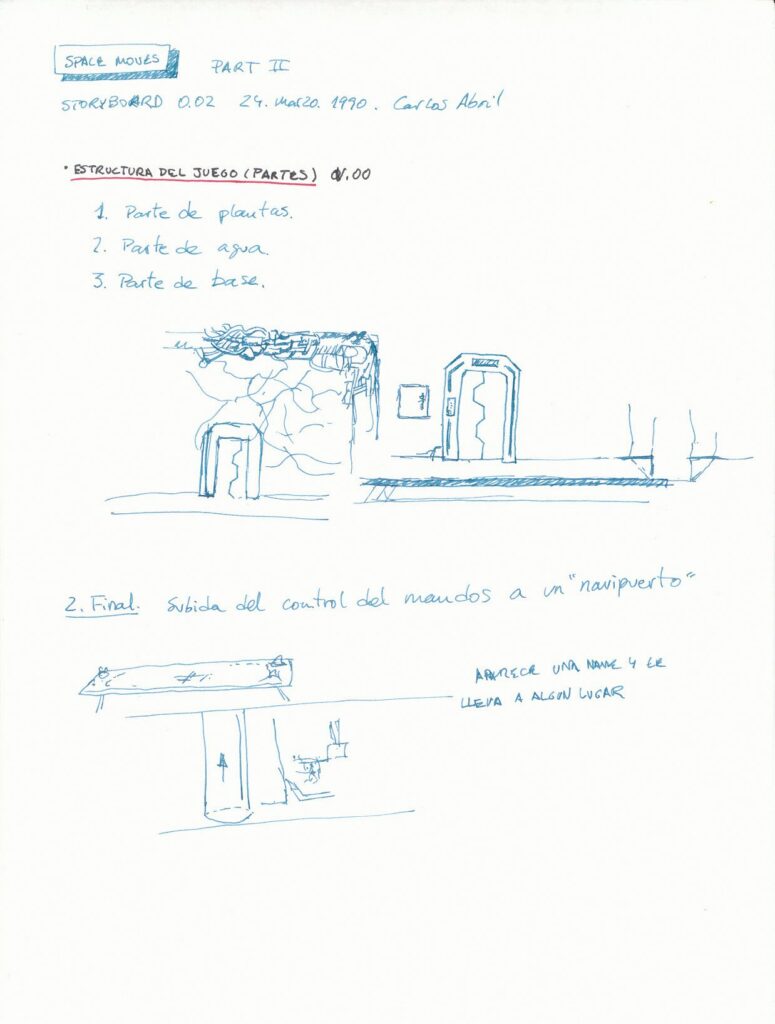 SPACE MOVES PART II
STORYBOARD 0.02 24. Marzo. 1990. Carlos Abril
· ESTRUCTURA DEL JUEGO (PARTES) V.00
1. Parte de plantas.
2. Parte de agua.
3. Parte de base.
2. Final. Subida del control del mandos a un "navipuerto"
APARECE UNA NAVE Y LE
LLEVA A ALGUN LUGAR